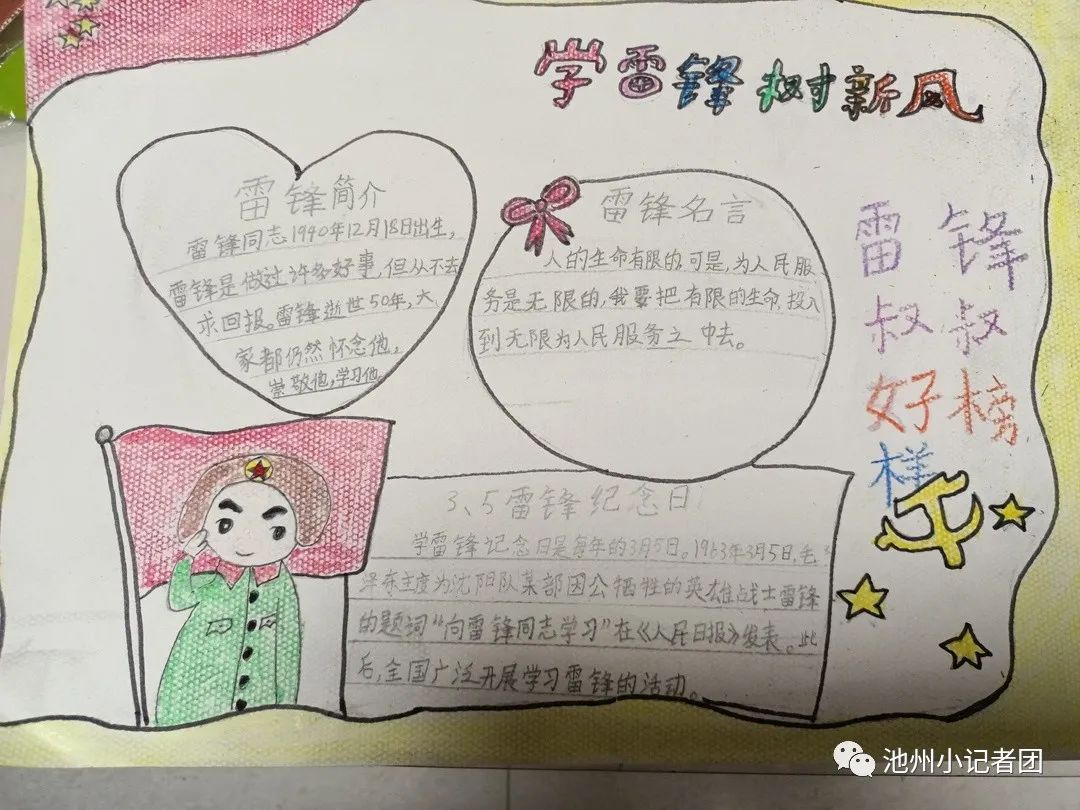 学雷锋树新风
雷锋简介
雷锋同志1940年12月18日出生,
雷锋是做过许多好事,但从不去
求回报。雷锋逝世50年,大
家都仍然怀念他,
崇敬他,学习他
雷锋名言
人的生命有限的,可是,为人民服
务是无限的,我要把有限的生命,投入
到无限为人民服务之中去。
雷锋
叔叔
好榜
样
3、5雷锋纪念日
学雷锋记念日是每年的3月5日。1963年3月5日,毛
泽东主席为沈阳队某部因公牺牲的英雄战士雷锋
的题词“向雷锋同志学习”在《人民日报》发表。此
后,全国广泛开展学习雷锋的活动。
池州小记者团